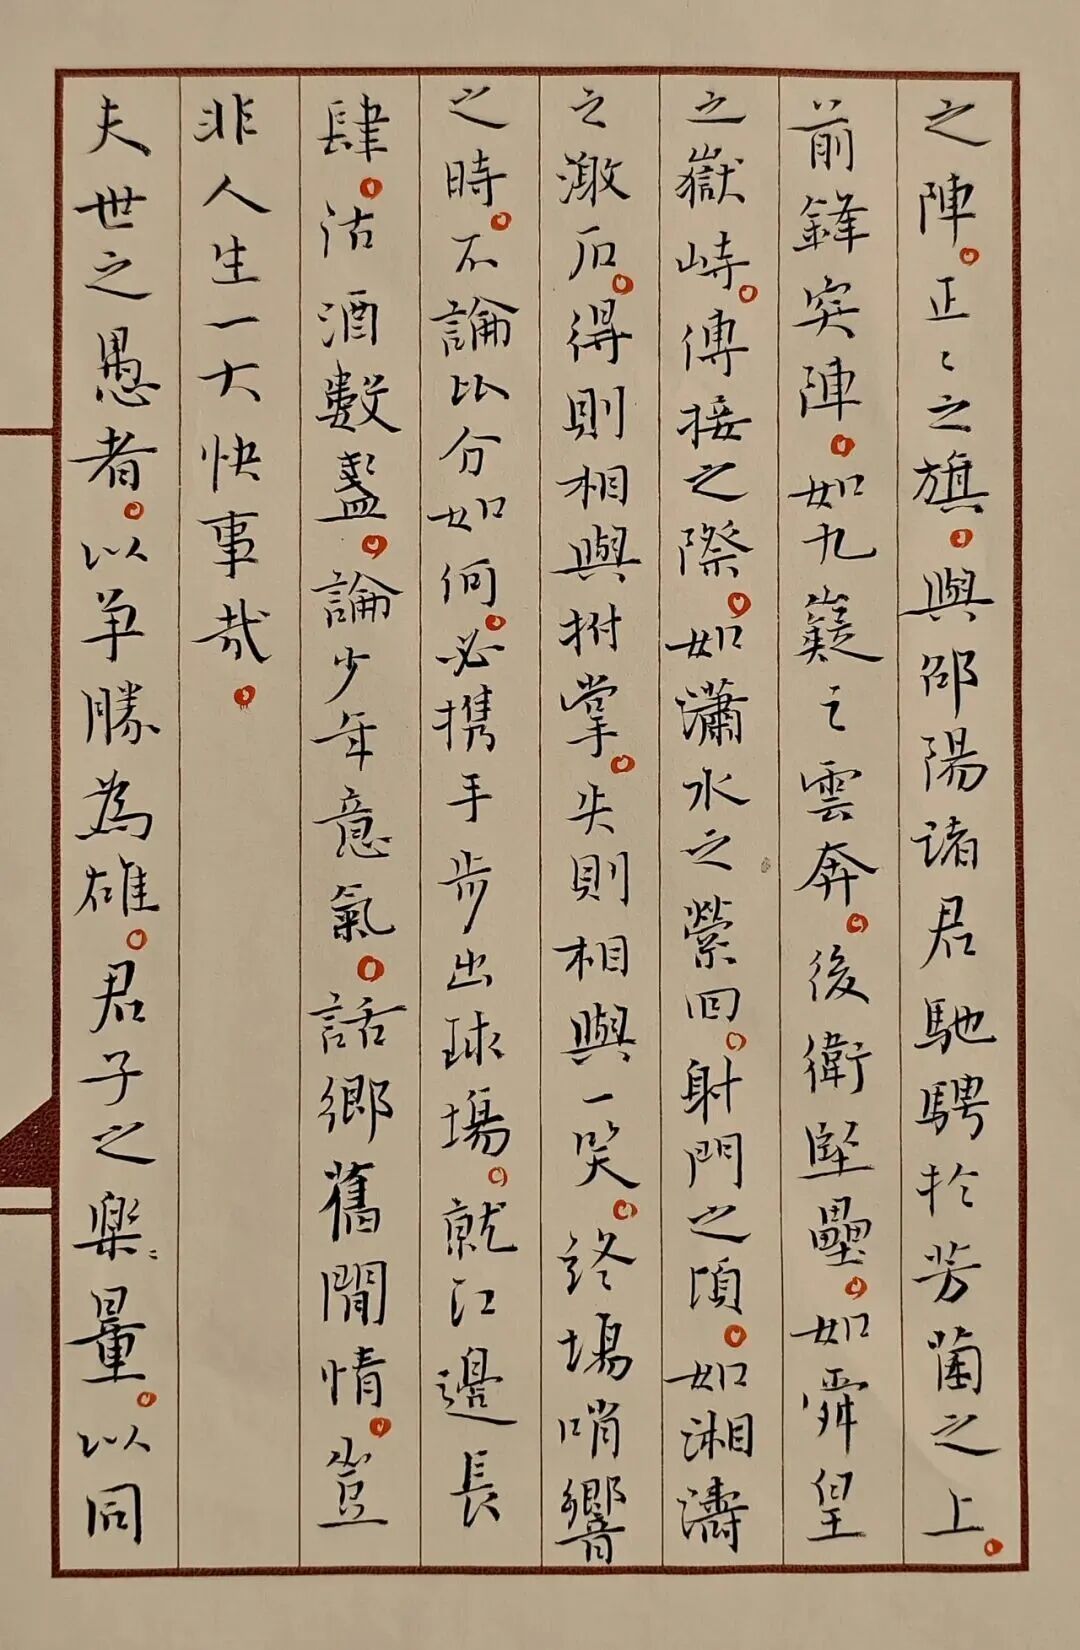 之陣。正〻之旗。與邵陽諸君馳騁於芳蘭之上。
前鋒突陣。如九嶷之雲奔。後衛堅壘。如舜皇
之嶽峙。傳接之際。如瀟水之縈回。射門之頃。如湘濤
之激石。得則相與拊掌。失則相與一笑。終場哨響
之時。不論比分如何。必携手步出球場。就江邊長
肆。沽酒數盞。論少年意氣。話鄉舊閒情。豈
非人生一大快事哉。
夫世之愚者。以争勝為雄。君子之樂〻量。以同